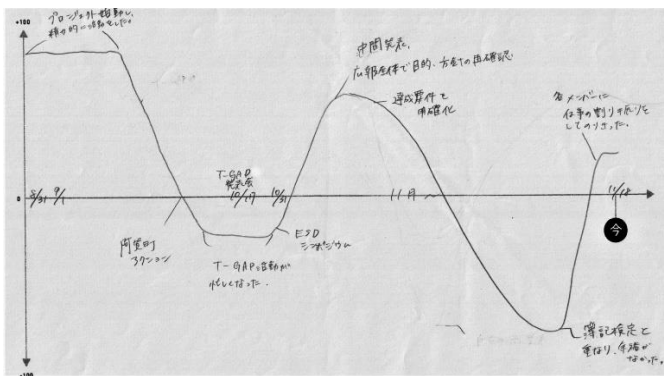 +100
プロジェクト始動し、
積極的に活動をした。
中間発表。
広報全体で目的、方針の再確認
達成要件を
明確化
各メンバーに
仕事の割り振りを
してのりきった。
T-GAP
発表会
8/31 9/1
10/17
10/31
11月~
11/18
0
今
アクション
ESD
シンポジウム
T-GAPの活動が
忙しくなった。
簿記検定と
重なり、余裕が
なかった。
-100